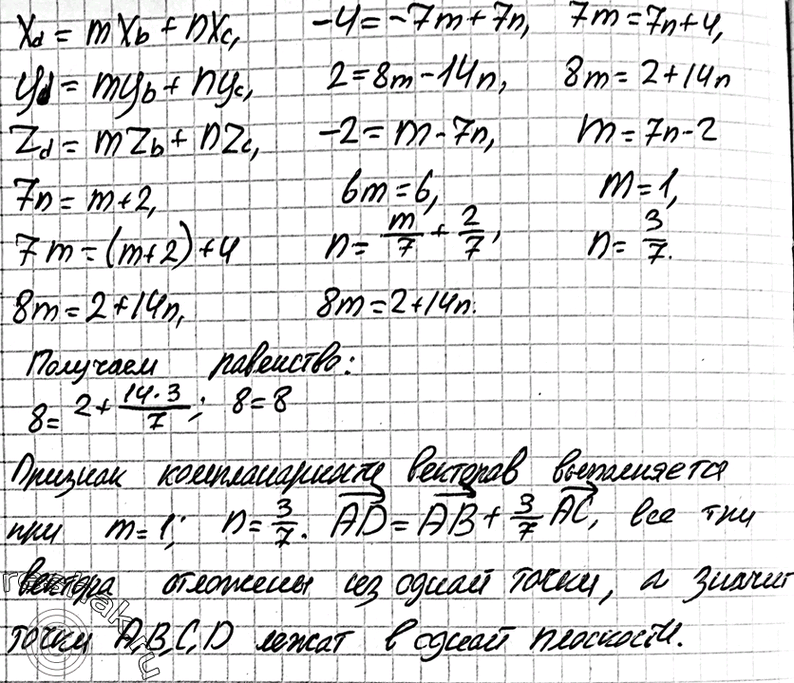 Xd = mXb + nXc, -4 = -7m + 7n, 7m = 7n + 4,
yd = myb + nyc, 2 = 8m - 14n, 8m = 2 + 14n
Zd = mZb + nZc, -2 = m - 7n, m = 7n - 2
7n = m + 2, 6m = 6, m = 1,
7m = (m + 2) + 4 n = m/7 + 2/7, n = 3/7.
8m = 2 + 14n, 8m = 2 + 14n.
Получаем равенство:
8 = 2 + 14·3/7; 8 = 8
Признак компланарности векторов выполняется
при m = 1; n = 3/7. AD = AB + 3/7 AC, все три
вектора отложены из одной точки, а значит
точки A, B, C, D лежат в одной плоскости.